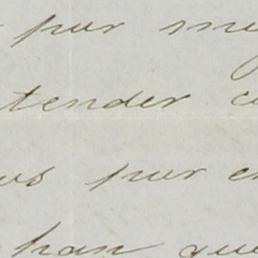 por me
tender c
us por e
han que